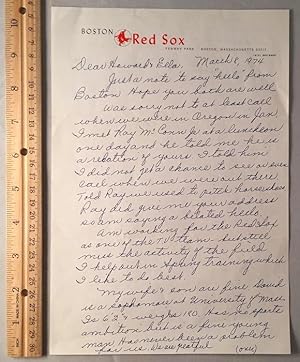 BOSTON Red Sox
FENWAY PARK BOSTON, MASSACHUSETTS 02215
Dear Howard & Ella, March 8, 1974
Just a note to say "hello" from
Boston. Hope you both are well.
Was sorry not to at least call
when we were in Oregon in Jan.
I met Ray Mc at a luncheon
one day and he told me he is
a relation of yours. I told him
I did not get a chance to see or even
call when we were out there.
Told Ray we used to pitch horseshoes
Ray did give me your address
so am saying a belated hello.
Am working for the Red Sox
as one of the TV team but still
miss the activity of the field
I help out in Spring training which
I like to do best.
My wife & son are fine David
is a sophomore at University of Mass.
Is 6'2" & weighs 180. Has no sports
ambition but is a fine young
man. Has never been a problem
for us. We're grateful (over)